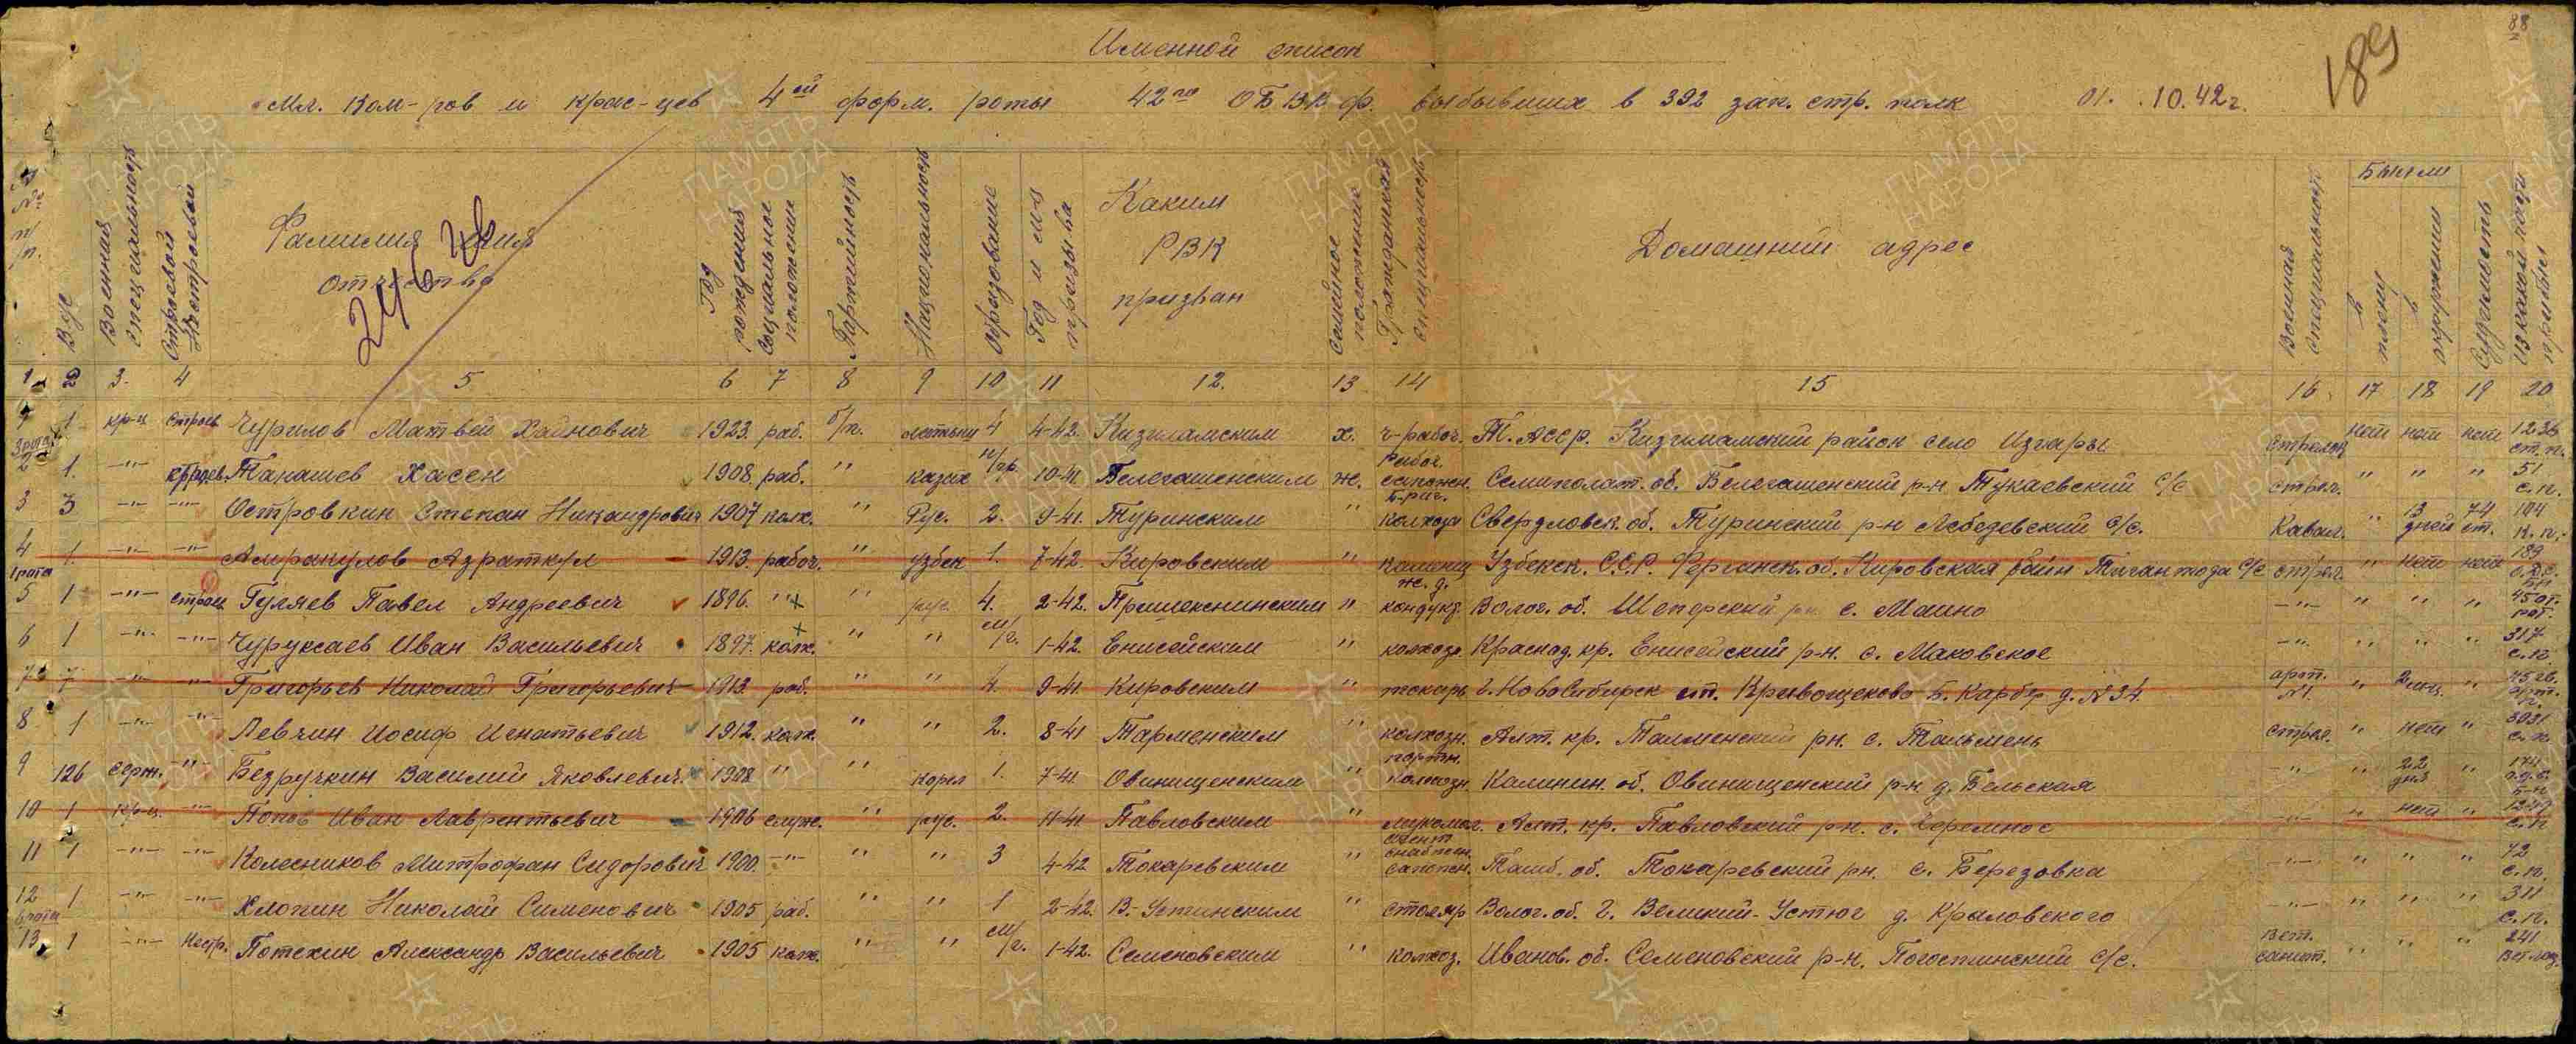 88
189
Именной список
Мл. Ком-ров и крас-цев 4ой форм. роты 42го ОБВК ф. выбывших в 392 зап. стр. полк 01. .10.42г.
№№ п/п. ВУС Военная специальность Строевой Нестроевой Фамилия имя отчество Год рождения Социальное положение Партийность Национальность Образование Год и м-ц призыва Каким РВК призван Семейное положение Гражданская специальность Домашний адрес Военная специальность Были в плену в окружении Судимость Из какой части прибыл
24678
1 2 3. 4 5 6 7 8 9 10 11 12. 13 14 15 16. 17 18 19 20
1 кр-ц строев Чурилов Матвей 1923. раб. б/п. 4 4-42. х. ч-рабоч. Т. АССР. район село Изгары стрелок нет нет нет 1236 ст.п.
3 рота
2 1. -"- Танашев Хасен 1908. раб. " казах н/гр. 10-41. Белегашенским ж. Рабоч. Семиполат. об. Белегашенский р-н Тукаевский с/с стрел. " " " 51 с.п.
3 3 -"- -"- Островкин Степан Никандрович 1907 колх. " Рус. 2. 9-41. Туринским " колхоза Свердловск. об. Туринский р-н Лебедевский с/с. Кавал. " 3 дней 74 ст. 104 к.п.
4 1. -"- -"- Амиракулов Азраткул 1913. рабоч. " узбек 1. 7-42. Кировским " каменщ Узбекск. С.С.Р. Ферганск. об. Кировская с/с стрел. " нет нет 189
1 рота
5 1 -"- строев Гуляев Павел Андреевич 1896. "х " рус. 4. 2-42. Пришекснинским " ж.д. кондукт. Волог. об. рн с. Маино -"- " " " 45 от. раб.
6 1 -"- -"- Чуруксаев Иван Васильевич 1897. колх. " " м/г. 1-42. Енисейским " колхоз. Краснад. кр. Енисейский р-н. с. Маковское -"- " " " 317 с.п.
7 7 -"- " Григорьев Николай Григорьевич 1913. раб. " " 4. 9-41. Кировским " токарь г. Новосибирск ст. Кривощеково Б. Карьер д. №34. арт. №1. " 2 мц. " 45 гв. арт. п.
8 1 -"- -"- Левчин Иосиф Игнатьевич 1912. колх. " " 2. 8-41 Тарменским " колхозн. Алт. кр. Талменский рн. с. Тальмень стрел. " нет " 3031 с.п.
9 126 серж. -"- Безручкин Василий Яковлевич 1908 " " карел 1. 7-41 Овинищенским " партн. колхозн. Калинин. об. Овинищенский р-н д. Бельская -"- " 22 дня " 174
10 1 кр-ц. -"- Попов Иван Лаврентьевич 1906 служ. " рус. 2. 11-41 Павловским " мукомол. Алт. кр. Павловский р-н. с. Черемное -"- " нет " с.п
11 1 -"- -"- Колесников Митрофан Сидорович 1900. -"- " " 3 4-42 Токаревским " агент снабжен. сапожн. Тамб. об. Токаревский рн. с. Березовка -"- " " " 72 с.п.
12 1 -"- -"- Хлопин Николай Сименович 1905 раб. " " 1 2-42. В.-Устинским " столяр Волог. об. г. Великий-Устюг д. Крыловского -"- " " " 311 с.п.
13 1 -"- Нестр. Потехин Александр Васильевич 1905 колх. " " м/г. 1-42. Семеновским " колхоз. Иванов. об. Семеновский р-н. Погостинский с/с. вет. санит. " " " 241 вет лаз.
ПАМЯТЬ НАРОДА